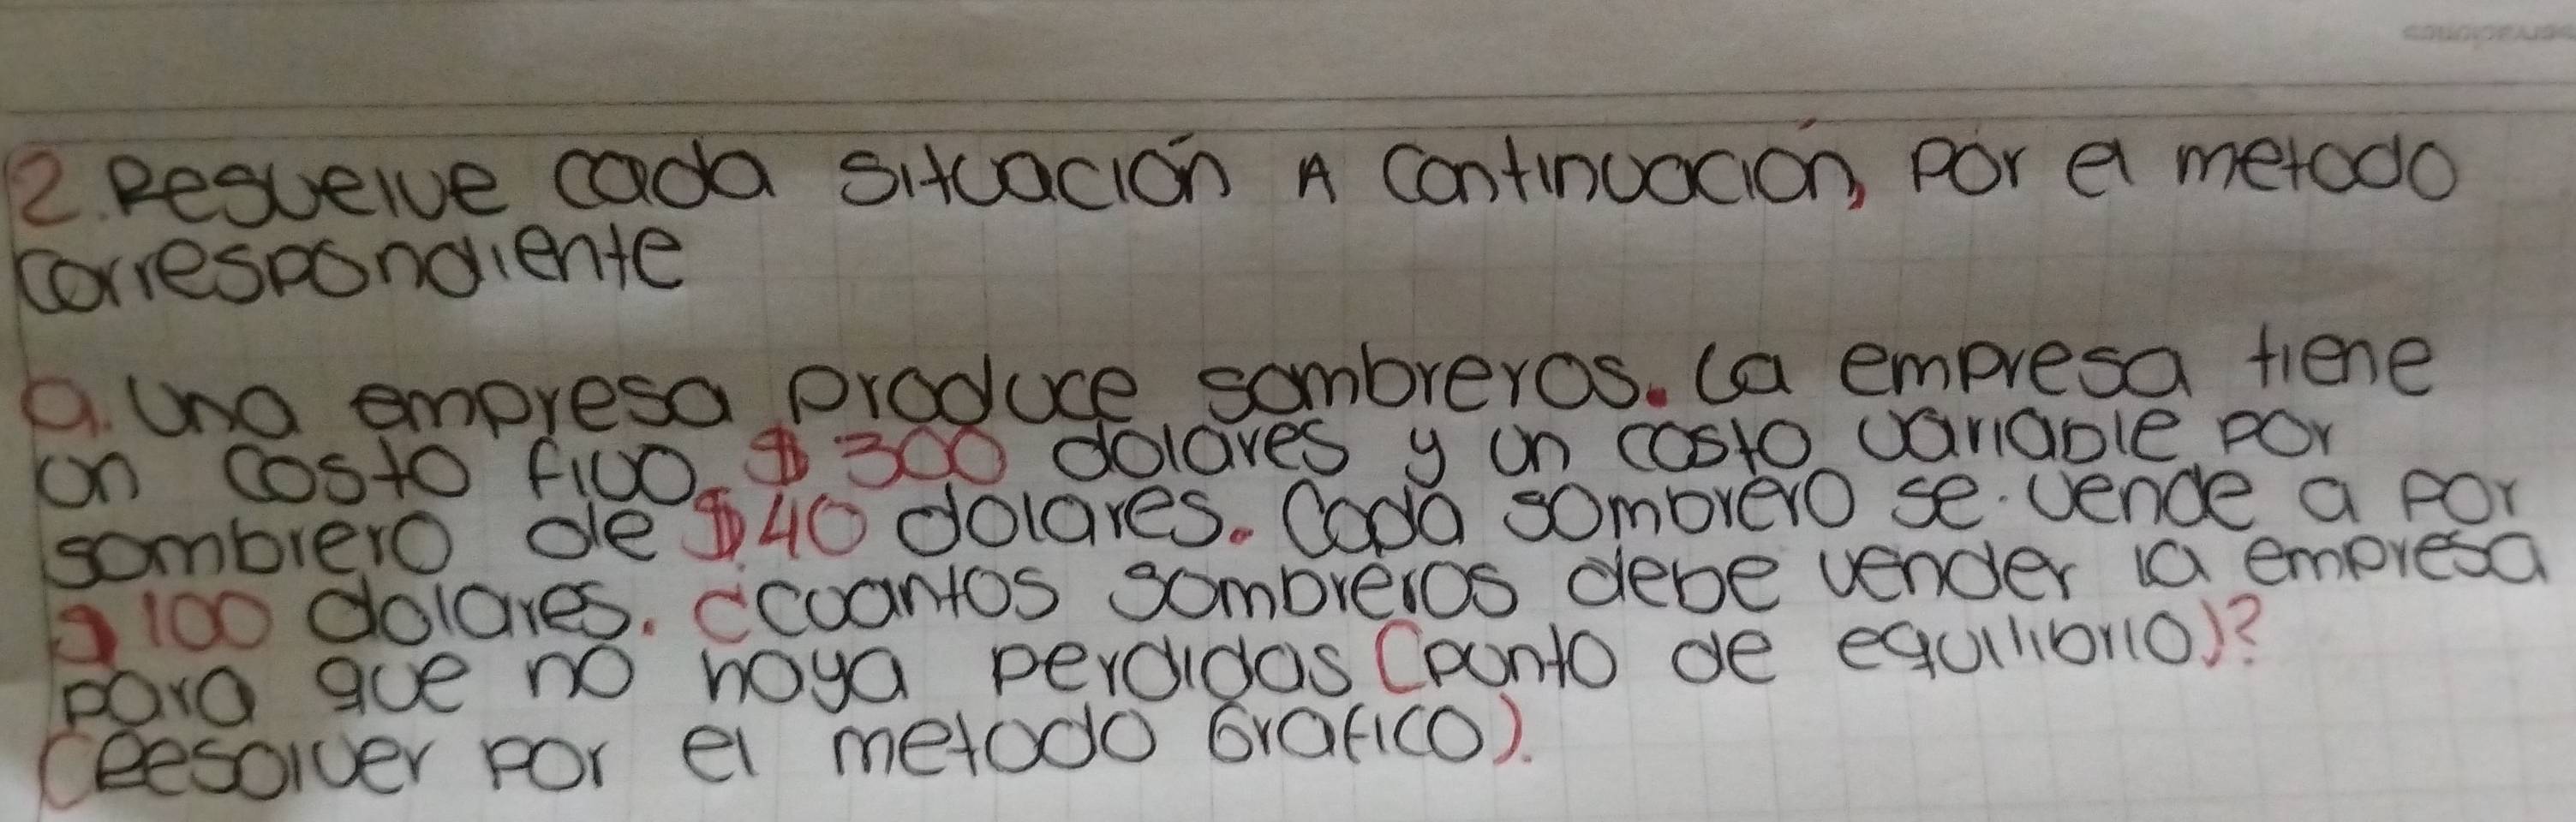 2. Resuelve cada situación A continuación, por el metodo
correspondiente
a. Una empresa produce sombreros. La empresa tiene
un costo fivo $300 dolares y un costo variable por
sombrero de $40 dolares. Cada sombrero se vende a por
$100 dolares. ¿cuantos sombreros debe vender la empresa
para que no haya perdidas (punto de equilibrio)?
(Resolver por el metodo Grafico).